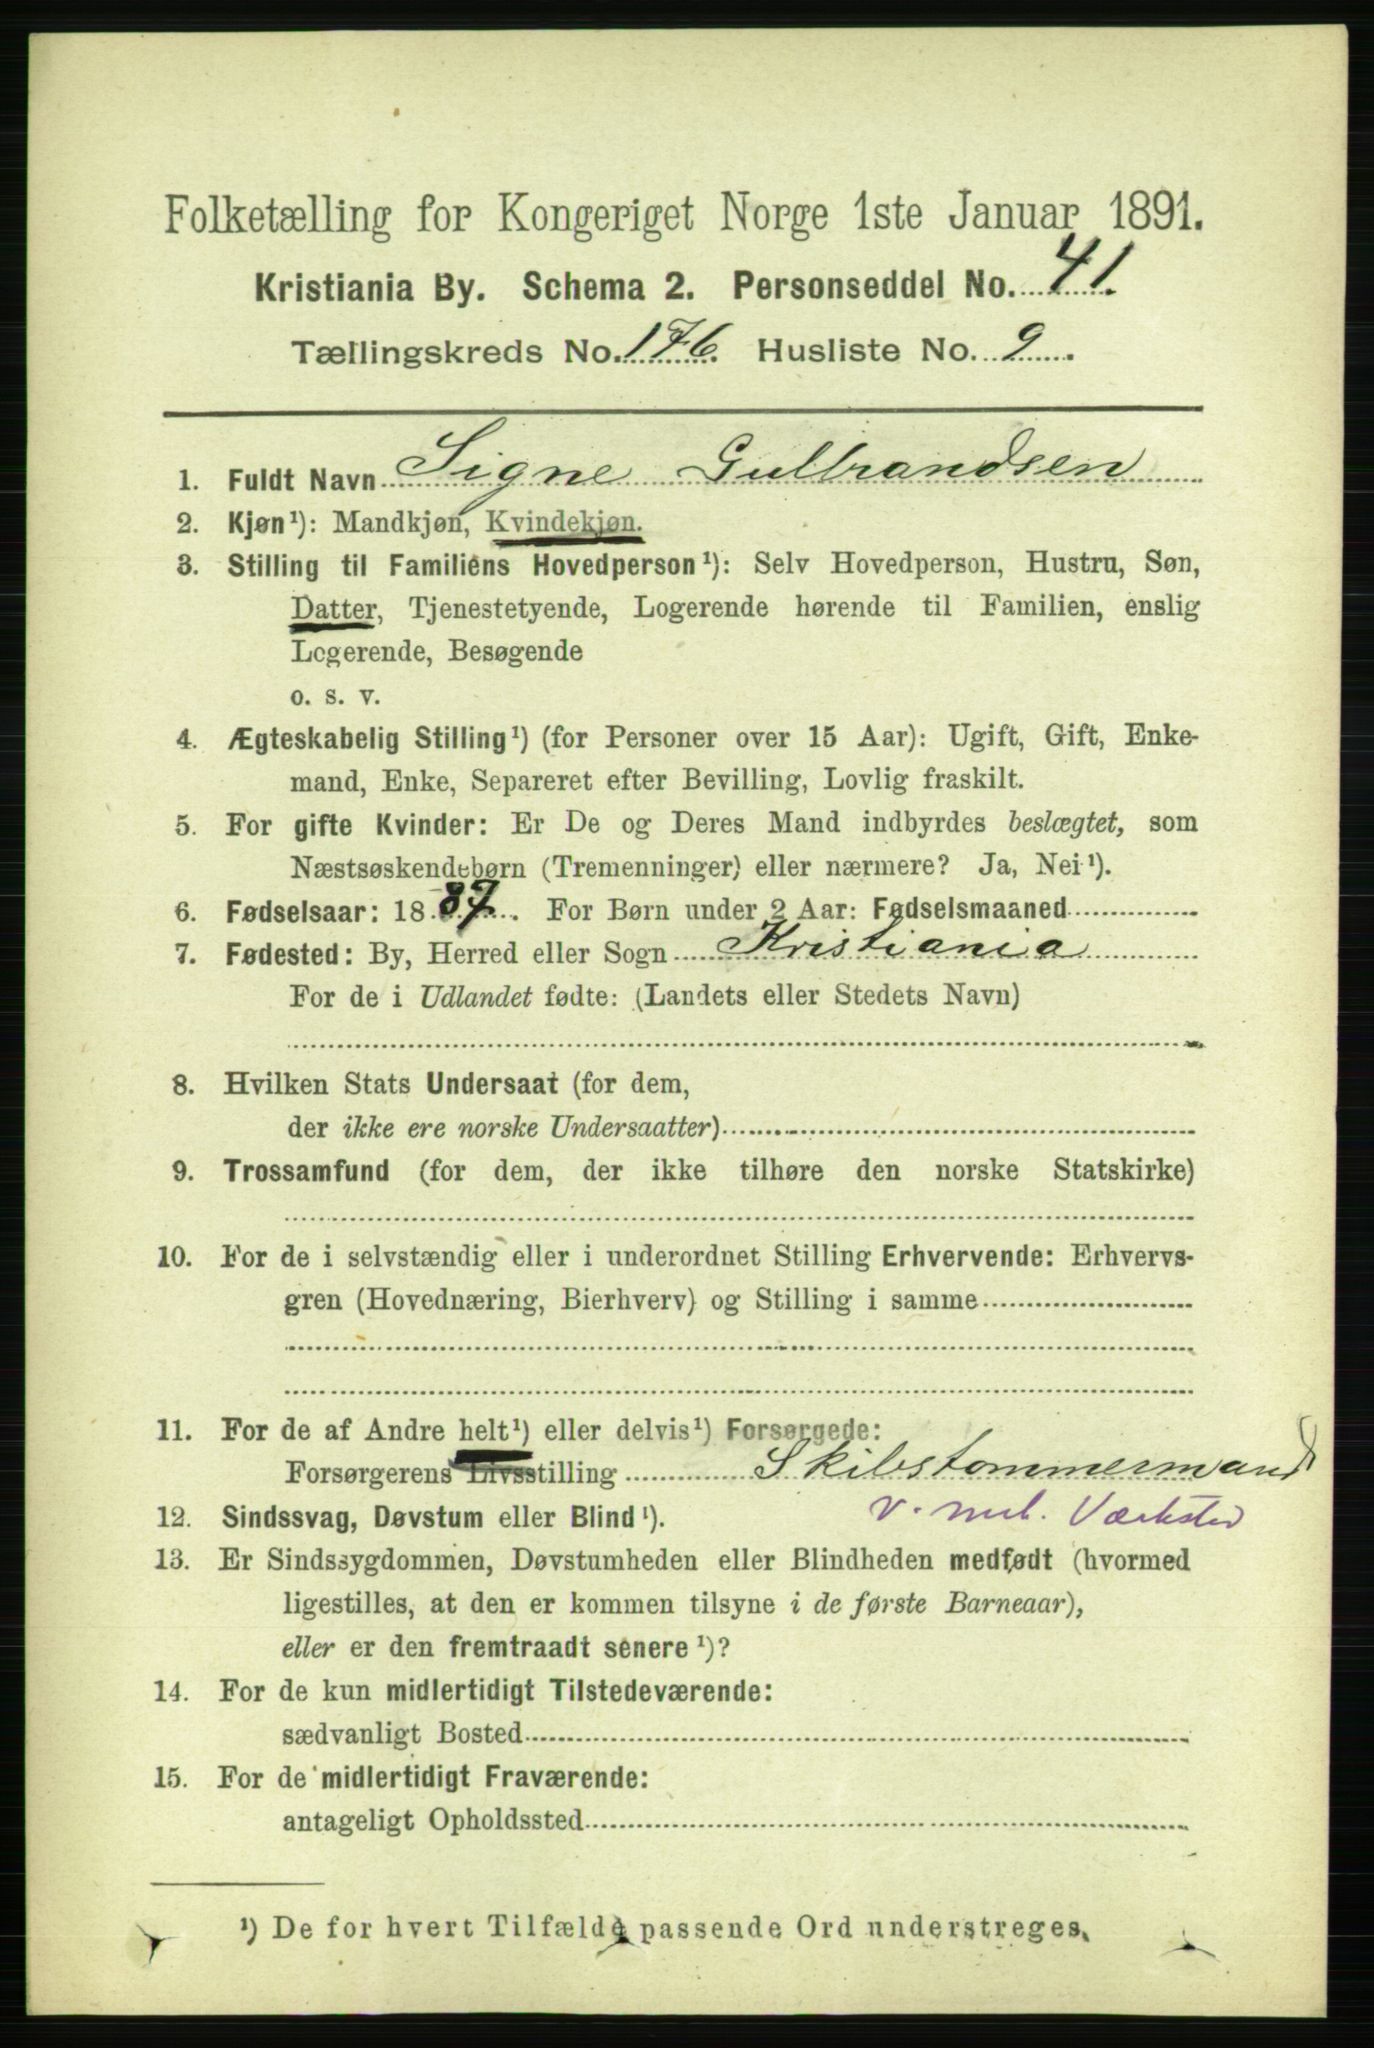 Folketælling for Kongeriget Norge 1ste Januar 1891.
Kristiania By. Schema 2. Personseddel No. 41.
Tællingskreds No. 176. Husliste No. 9
1. Fuldt Navn Signe Gulbrandsen
2. Kjøn¹): Mandkjøn, Kvindekjøn.
3. Stilling til Familiens Hovedperson¹): Selv Hovedperson, Hustru, Søn,
Datter, Tjenestetyende, Logerende hørende til Familien, enslig
Logerende, Besøgende
o. s. v.
4. Ægteskabelig Stilling¹) (for Personer over 15 Aar): Ugift, Gift, Enke-
mand, Enke, Separeret efter Bevilling, Lovlig fraskilt.
5. For gifte Kvinder: Er De og Deres Mand indbyrdes beslægtet, som
Næstsøskendebørn (Tremenninger) eller nærmere? Ja, Nei¹).
6. Fødselsaar: 1887. For Børn under 2 Aar: Fødselsmaaned
7. Fødested: By, Herred eller Sogn Kristiania
For de i Udlandet fødte: (Landets eller Stedets Navn)
8. Hvilken Stats Undersaat (for dem,
der ikke ere norske Undersaatter)
9. Trossamfund (for dem, der ikke tilhøre den norske Statskirke)
10. For de i selvstændig eller i underordnet Stilling Erhvervende: Erhvervs-
gren (Hovednæring, Bierhverv) og Stilling i samme
11. For de af Andre helt¹) eller delvis¹) Forsørgede:
Forsørgerens Livsstilling Skibstommermand
v. mek. Værksted
12. Sindssvag, Døvstum eller Blind¹).
13. Er Sindssygdommen, Døvstumheden eller Blindheden medfødt (hvormed
ligestilles, at den er kommen tilsyne i de første Barneaar),
eller er den fremtraadt senere¹)?
14. For de kun midlertidigt Tilstedeværende:
sædvanligt Bosted
15. For de midlertidigt Fraværende:
antageligt Opholdssted
¹) De for hvert Tilfælde passende Ord understreges.